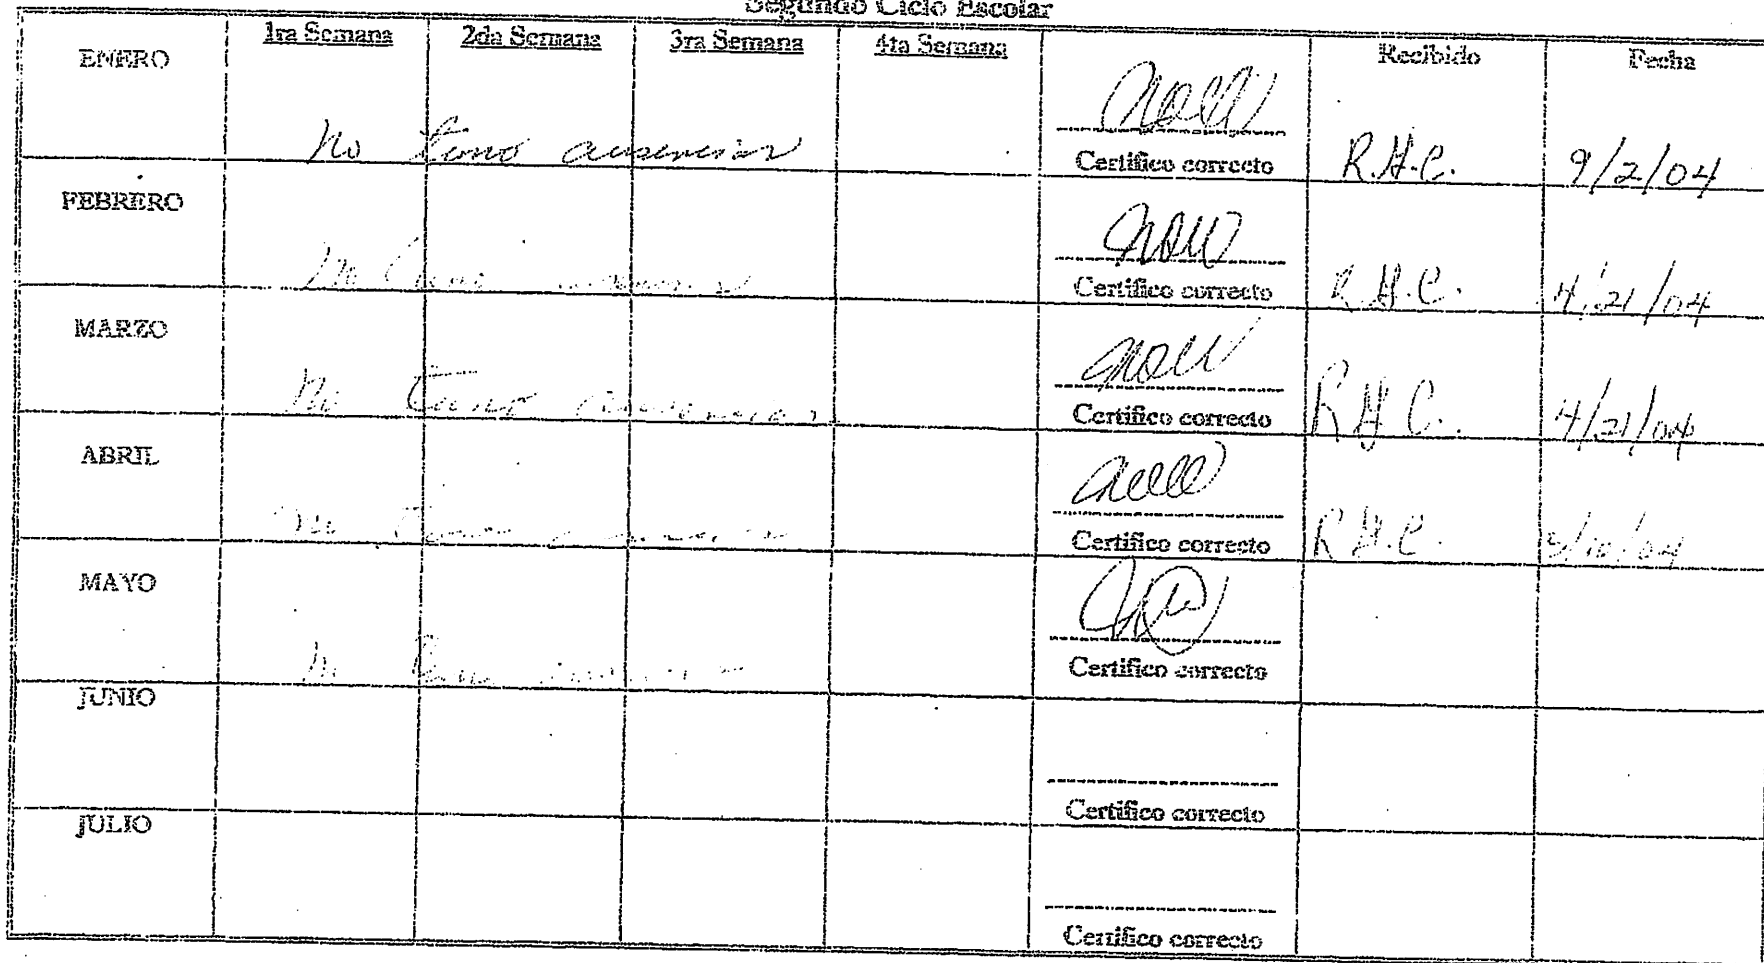 Segundo Ciclo Escolar
1ra Semana 2da Semana 3ra Semana 4ta Semana Recibido Fecha
ENERO
No tuvo ausencias Certifico correcto R.H.C. 9/2/04
FEBRERO
No Certifico correcto R.H.C. 4/21/04
MARZO
No tuvo ausencias Certifico correcto R.H.C. 4/21/04
ABRIL
No tuvo Certifico correcto R.H.C. 5/10/04
MAYO
Certifico correcto
JUNIO
Certifico correcto
JULIO
Certifico correcto